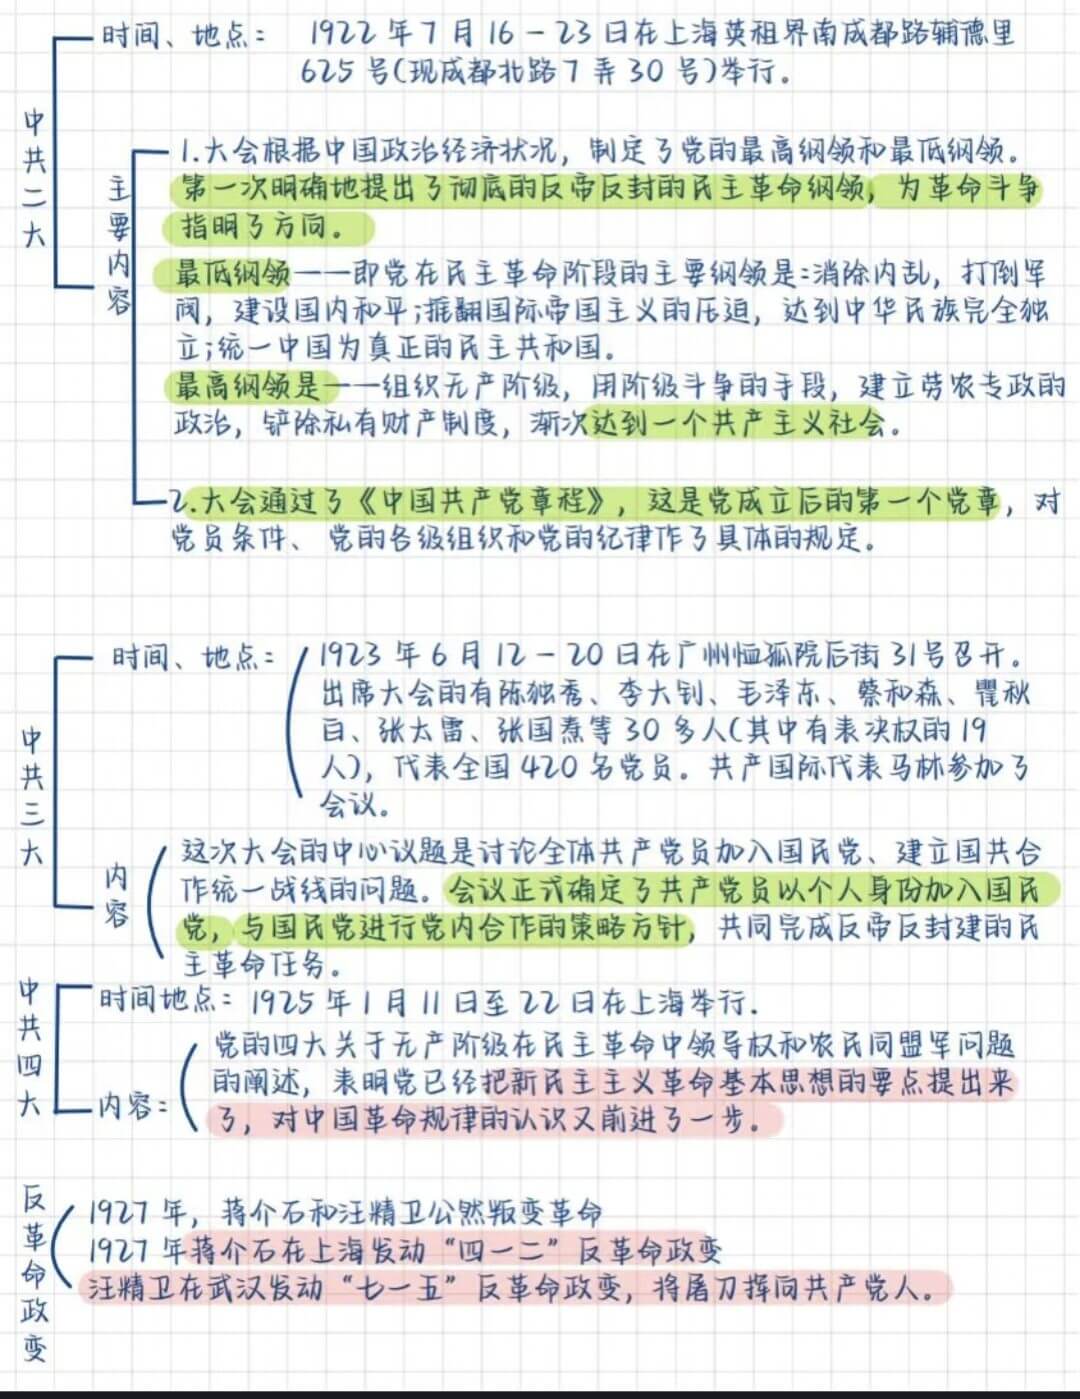 中共二大
时间、地点： 1922年7月16－23日在上海英租界南成都路辅德里
625号(现成都北路7弄30号)举行。
主要内容
1.大会根据中国政治经济状况，制定了党的最高纲领和最低纲领。
第一次明确地提出了彻底的反帝反封的民主革命纲领，为革命斗争
指明了方向。
最低纲领——即党在民主革命阶段的主要纲领是:消除内乱，打倒军
阀，建设国内和平;推翻国际帝国主义的压迫，达到中华民族完全独
立;统一中国为真正的民主共和国。
最高纲领是——组织无产阶级，用阶级斗争的手段，建立劳农专政的
政治，铲除私有财产制度，渐次达到一个共产主义社会。
2.大会通过了《中国共产党章程》，这是党成立后的第一个党章，对
党员条件、党的各级组织和党的纪律作了具体的规定。
中共三大
时间、地点：1923年6月12－20日在广州恤孤院后街31号召开。
出席大会的有陈独秀、李大钊、毛泽东、蔡和森、瞿秋
白、张太雷、张国焘等30多人(其中有表决权的19
人)，代表全国420名党员。共产国际代表马林参加了
会议。
内容
这次大会的中心议题是讨论全体共产党员加入国民党、建立国共合
作统一战线的问题。会议正式确定了共产党员以个人身份加入国民
党，与国民党进行党内合作的策略方针，共同完成反帝反封建的民
主革命任务。
中共四大
时间地点：1925年1月11日至22日在上海举行.
内容：
党的四大关于无产阶级在民主革命中领导权和农民同盟军问题
的阐述，表明党已经把新民主主义革命基本思想的要点提出来
了，对中国革命规律的认识又前进了一步。
反革命政变
1927年，蒋介石和汪精卫公然叛变革命
1927年蒋介石在上海发动“四一二”反革命政变
汪精卫在武汉发动“七一五”反革命政变，将屠刀挥向共产党人。